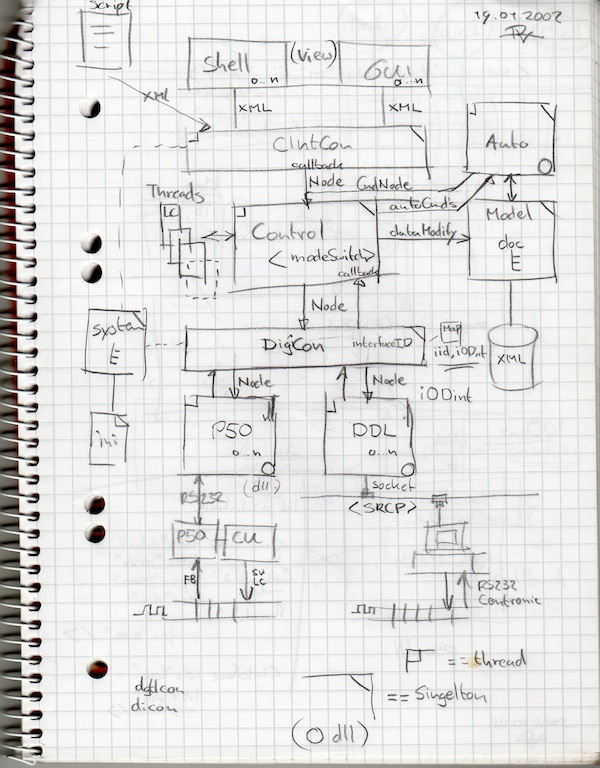 Script
19.01.2002
Shell
0..n
(View)
GUI
0..n
XML
XML
XML
ClntCon
callback
Auto
Node
CmdNode
Threads
LC
autoCmd's
Control
<modeSwitch>
callback
dataModify
Model
doc
E
Node
System
E
DigiCon
interfaceID
Map
iid, iODint
XML
ini
Node
Node
iODint
P50
0..n
DDL
0..n
(dll)
RS232
socket
<SRCP>
P50
CU
FB
SW
LC
RS232
Centronic
== thread
dgtlcon
dicon
== Singelton
(O dll)